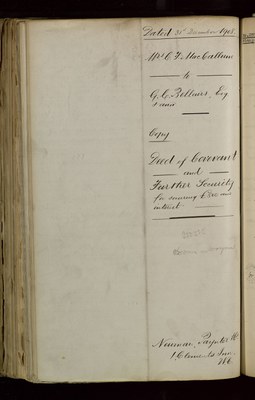 Dated 31st December 1908
Mrs C. F. MacCallum
to
G. C. Bellairs, Esq
Copy
Deed of Covenant
and
Further Security
for securing £ and
interest
Newman, Paynter &
1 Clements Inn
W.C.